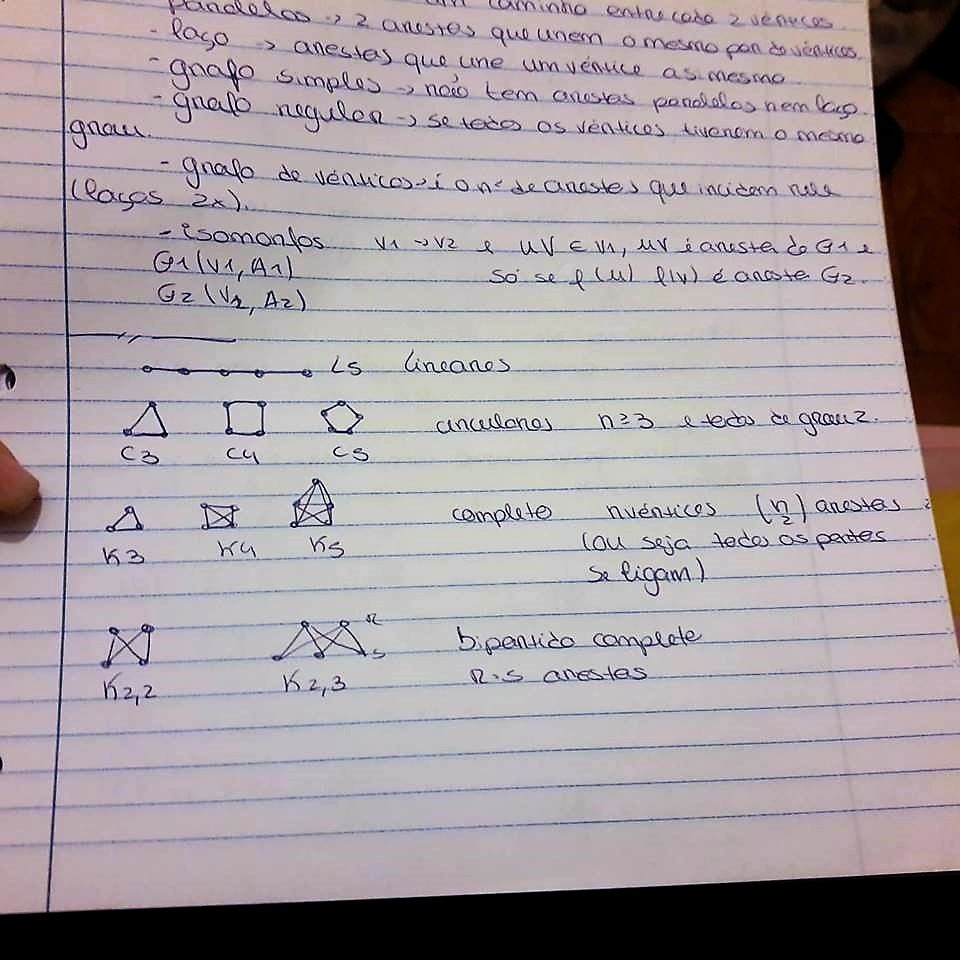 um caminho entre cada 2 vértices
paralelas -> 2 arestas que unem o mesmo par de vértices.
- laço -> arestas que une um vértice a si mesmo
- grafo simples -> não tem arestas paralelas nem laço.
- grafo regular -> se todos os vértices tiverem o mesmo
grau.
- grafo de vértices -> é o nº de arestas que incidem nele
(laços 2x).
- isomorfos V1 -> V2 e uv ∈ V1, uv é aresta de G1 e
G1 (V1, A1) só se f(u) f(v) é aresta G2.
G2 (V2, A2)
L5 lineares
circulares n ≥ 3 e todos de grau 2.
C3 C4 C5
completo n vértices (n 2) arestas
K3 K4 K5 (ou seja todos os
se ligam)
r
s
bipartido completo
K2,2 K2,3 r.s arestas